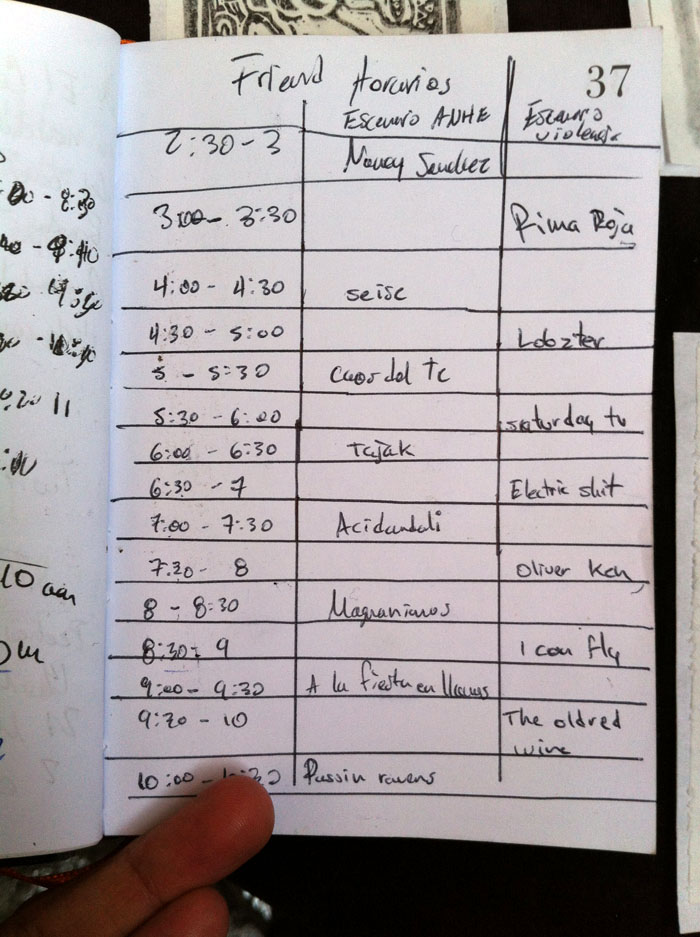 Friend Horarios 37
Escenario ANHE Escenario
violencia
2:30 - 3 Nancy Sanchez
3:00 - 3:30 Rima Roja
4:00 - 4:30 seise
4:30 - 5:00 Lobzter
5 - 5:30 del Tc
5:30 - 6:00 saturday tv
6:00 - 6:30 Tajak
6:30 - 7 Electric shit
7:00 - 7:30 Acidandali
7:30 - 8 Oliver Ken
8 - 8:30 Magnanimos
8:30 - 9 I can fly
9:00 - 9:30 A la fiesta en llamas
9:30 - 10 The oldred
wine
10:00 - Pussin ravens